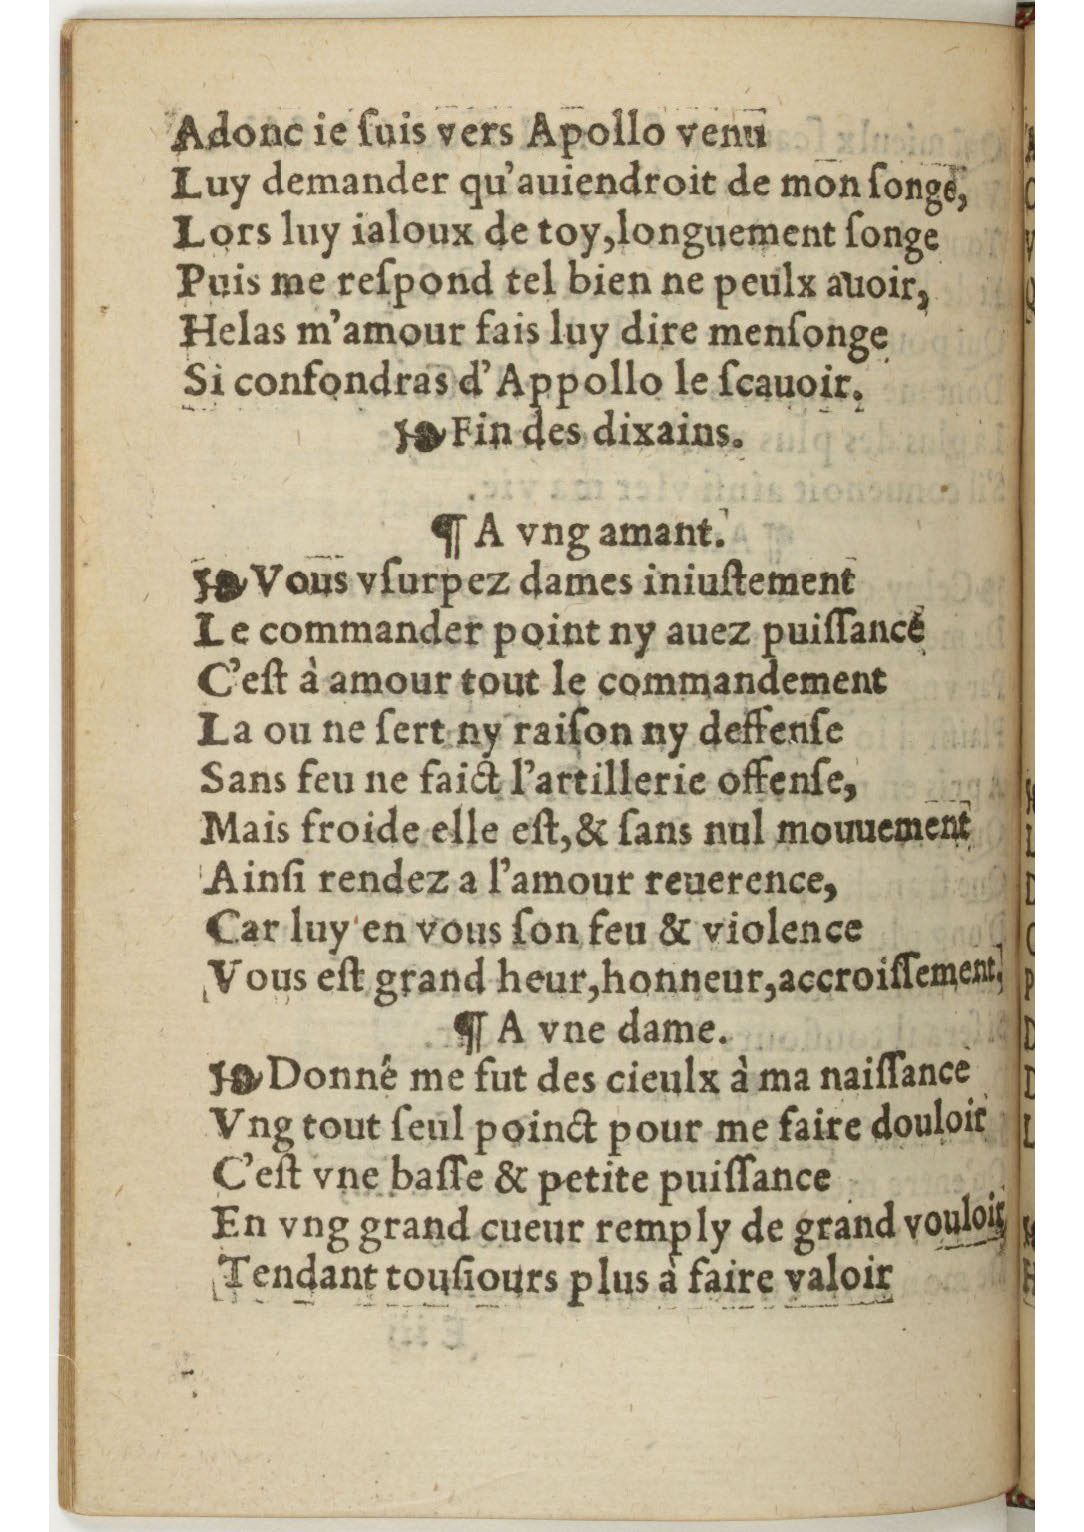 Adonc ie ſuis vers Apollo venu
Luy demander qu'auiendroit de mon ſonge,
Lors luy ialoux de toy,longuement ſonge
Puis me reſpond tel bien ne peulx auoir,
Helas m'amour fais luy dire menſonge
Si confondras d'Appollo le ſcauoir.
Fin des dixains.
¶ A vng amant.
Vous vſurpez dames iniuſtement
Le commander point ny auez puiſſance
C'eſt à amour tout le commandement
La ou ne ſert ny raiſon ny deffenſe
Sans feu ne faict l'artillerie offenſe,
Mais froide elle eſt,& ſans nul mouuement
Ainſi rendez a l'amour reuerence,
Car luy en vous ſon feu & violence
Vous eſt grand heur,honneur,accroiſſement,
¶ A vne dame.
Donné me fut des cieulx à ma naiſſance
Vng tout ſeul poinct pour me faire douloir
C'eſt vne baſſe & petite puiſſance
En vng grand cueur remply de grand vouloir
Tendant touſiours plus à faire valoir